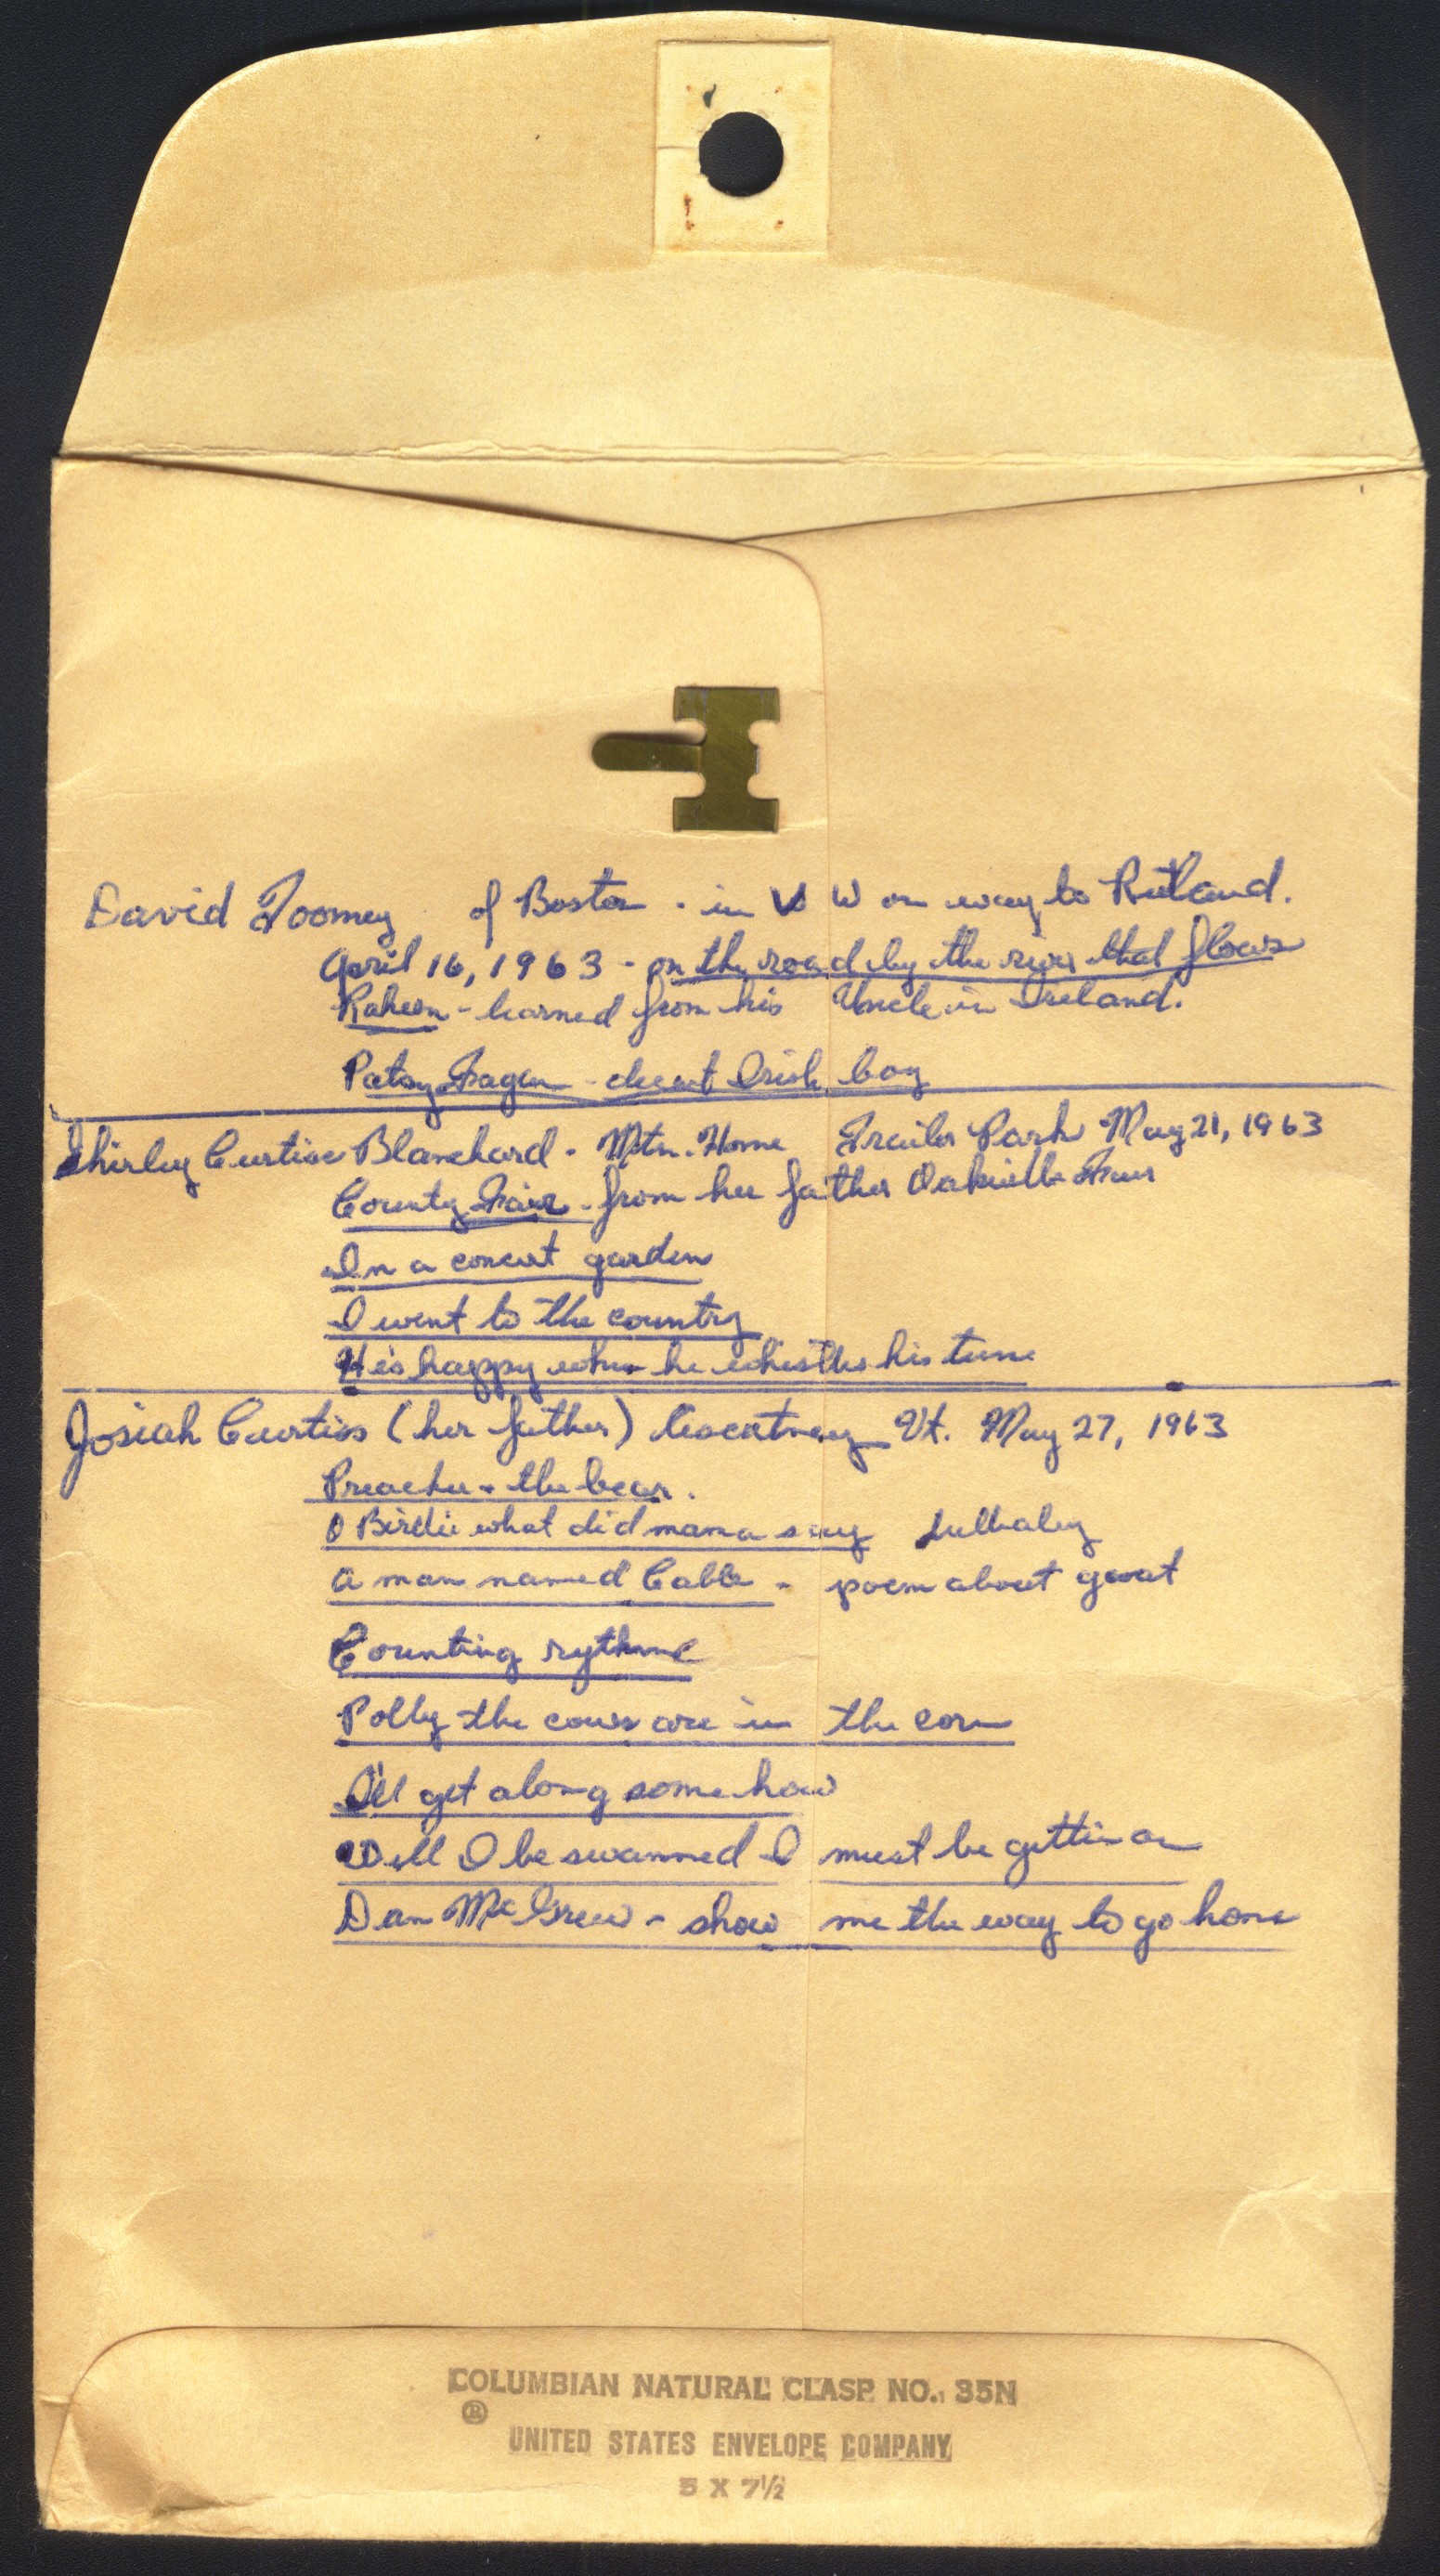 David Toomey of Boston - in VW on way to Rutland.
April 16, 1963 - on the road by the river that flows
Raheen - learned from his Uncle in Ireland.
Patsy Fagen - decent Irish boy
Shirley Curtiss Blanchard - Mtn. Home Trailer Park May 21, 1963
County Fair - from her father
In a concert garden
I went to the country
He's happy when he whistles his tune
Josiah Curtiss (her father) Vt. May 27, 1963
Preacher + the bear.
O Birdie what did mama say Lullaby
A man named Cabb - poem about goat
Counting rythme
Polly the cows are in the corn
I'll get along somehow
Well I be swanned I must be gettin on
Dan McGrew - show me the way to go home
COLUMBIAN NATURAL CLASP NO. 35N
®
UNITED STATES ENVELOPE COMPANY
5 X 7½